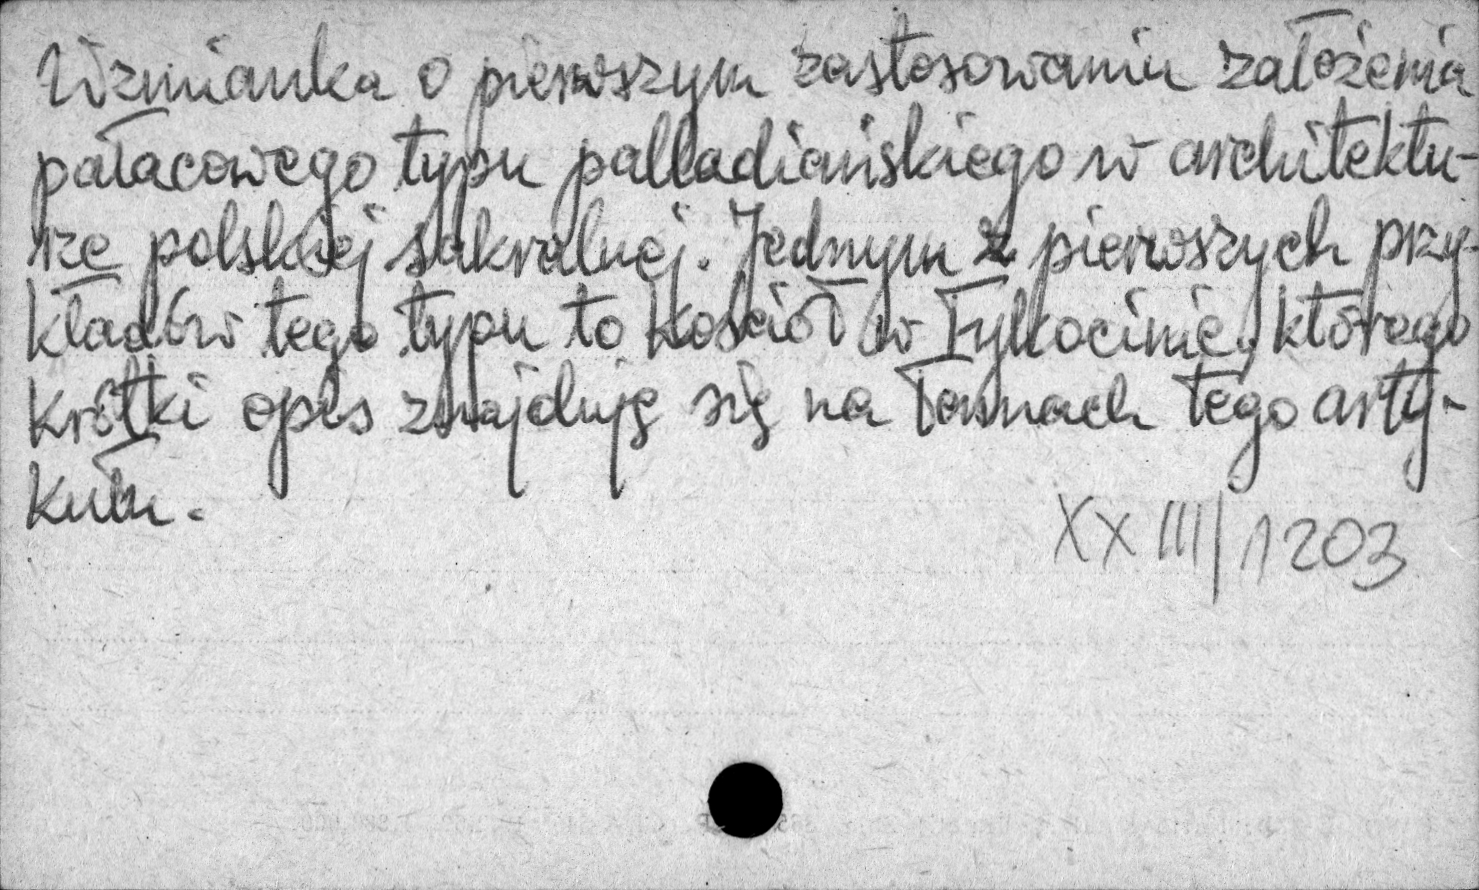 Wzmianka o pierwszym zastosowaniu założenia
pałacowego typu palladiańskiego w architektu-
rze polskiej sakralnej. Jednym z pierwszych przy-
kładów tego typu to kościół w Tykocinie, którego
krótki opis znajduję się na łamach tego arty-
kułu.
XX IIII/1203